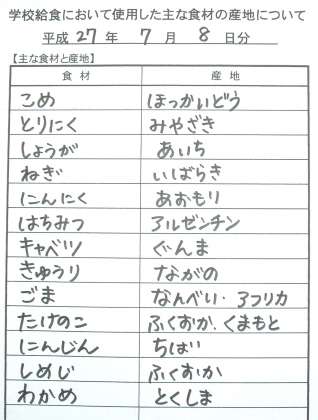 学校給食において使用した主な食材の産地について
平成 27 年 7 月 8 日分
【主な食材と産地】
食材 産地
こめ ほっかいどう
とりにく みやざき
しょうが あいち
ねぎ いばらき
にんにく あおもり
はちみつ アルゼンチン
キャベツ ぐんま
きゅうり ながの
ごま なんべい・アフリカ
たけのこ ふくおか、くまもと
にんじん ちば
しめじ ふくおか
わかめ とくしま